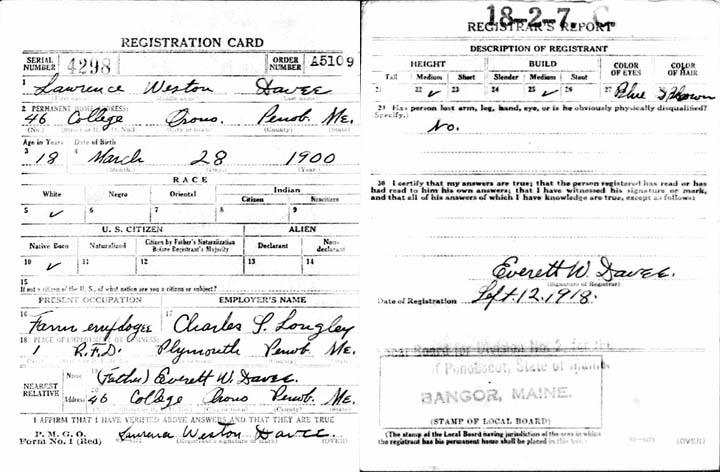 REGISTRATION CARD
SERIAL NUMBER 4298 ORDER NUMBER A5109
1 Lawrence Weston Davee
2 PERMANENT HOME ADDRESS:
46 College Orono Penob. Me.
(No.) (City or town) (County) (State)
Age in Years Date of Birth
3 18 4 March 28 1900
(Month) (Day) (Year)
RACE
White Negro Oriental Indian
Citizen Noncitizen
5 ✓ 6 7 8 9
U. S. CITIZEN ALIEN
Native Born Naturalized Citizen by Father's Naturalization Before Registrant's Majority Declarant Non-declarant
10 ✓ 11 12 13 14
15
If not a citizen of the U. S., of what nation are you a citizen or subject?
PRESENT OCCUPATION EMPLOYER'S NAME
16 Farm employee 17 Charles S. Longley
18 PLACE OF EMPLOYMENT OR BUSINESS:
1 R.F.D. Plymouth Penob. Me.
NEAREST RELATIVE
Name 19 (Father) Everett W. Davee.
Address 20 46 College Orono Penob. Me.
I AFFIRM THAT I HAVE VERIFIED ABOVE ANSWERS AND THAT THEY ARE TRUE
P. M. G. O.
Form No. 1 (Red) Lawrence Weston Davee
(Registrant's signature or mark) (OVER)
18-2-7. C
REGISTRAR'S REPORT
DESCRIPTION OF REGISTRANT
HEIGHT BUILD COLOR OF EYES COLOR OF HAIR
Tall Medium Short Slender Medium Stout
21 22 ✓ 23 24 25 ✓ 26 27 Blue 28 Brown
29 Has person lost arm, leg, hand, eye, or is he obviously physically disqualified?
(Specify.)
No.
30 I certify that my answers are true; that the person registered has read or has
had read to him his own answers; that I have witnessed his signature or mark,
and that all of his answers of which I have knowledge are true, except as follows:
Everett W. Davee.
(Signature of Registrar)
Date of Registration Sept. 12. 1918.
Local Board for Division No. 2, for the
of Penobscot, State of Maine
BANGOR, MAINE.
(STAMP OF LOCAL BOARD)
(The stamp of the Local Board having jurisdiction of the area in which
the registrant has his permanent home shall be placed in this box.) (OVER)